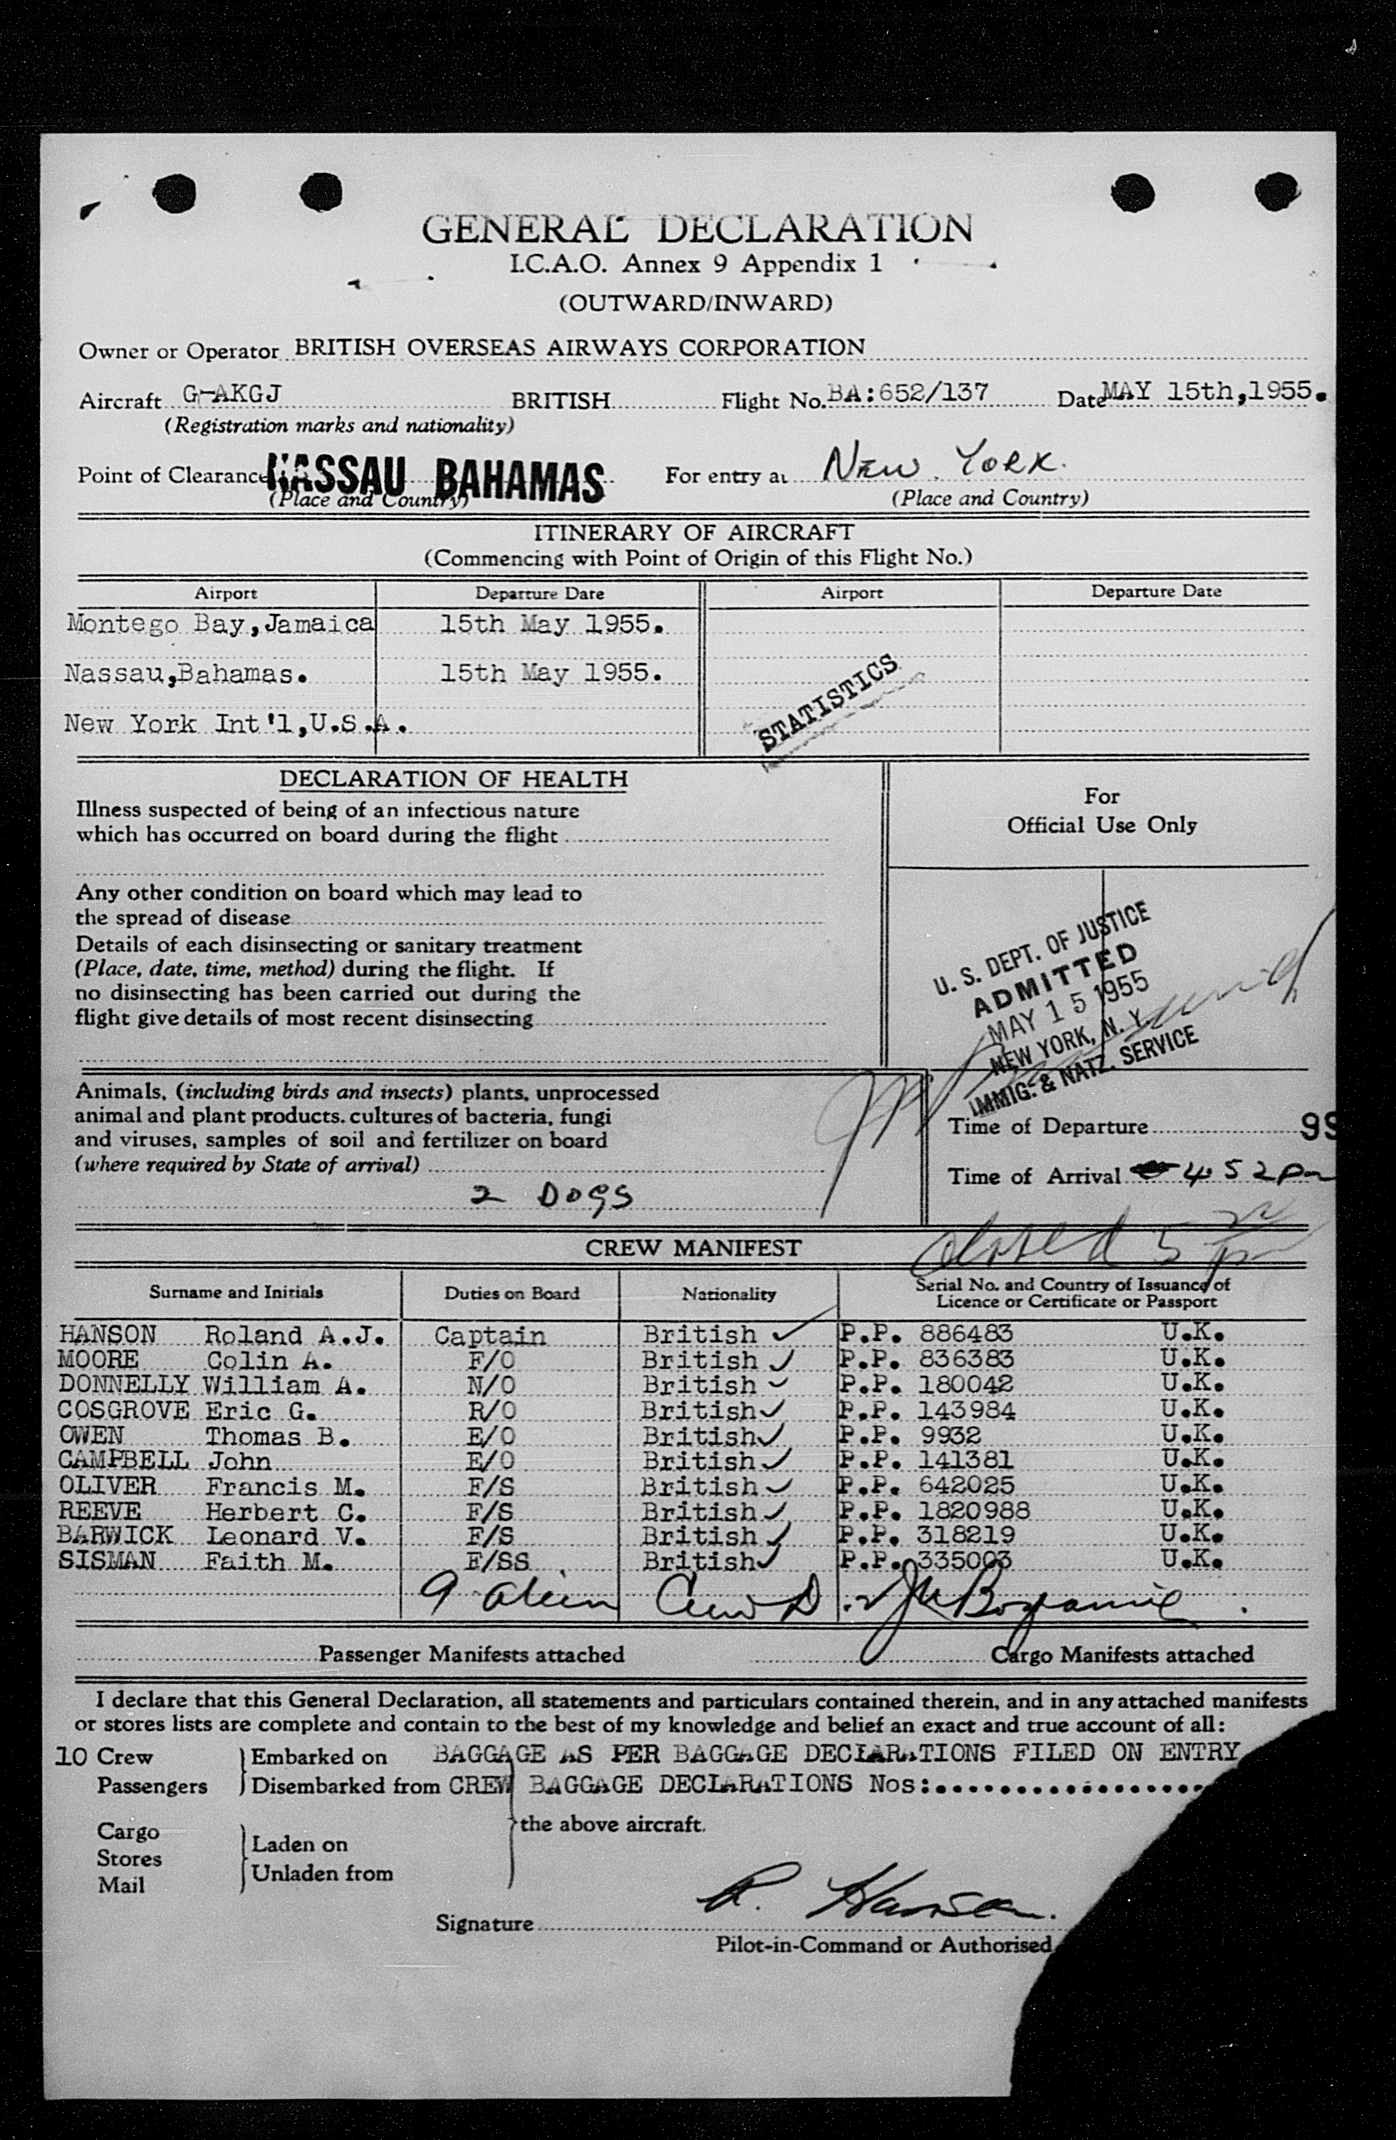 GENERAL DECLARATION
I.C.A.O. Annex 9 Appendix 1
(OUTWARD/INWARD)
Owner or Operator BRITISH OVERSEAS AIRWAYS CORPORATION
Aircraft G-AKGJ BRITISH Flight No. BA:652/137 Date MAY 15th,1955.
(Registration marks and nationality)
Point of Clearance NASSAU BAHAMAS For entry at NEW YORK.
(Place and Country) (Place and Country)
ITINERARY OF AIRCRAFT
(Commencing with Point of Origin of this Flight No.)
Airport Departure Date Airport Departure Date
Montego Bay,Jamaica 15th May 1955.
Nassau,Bahamas. 15th May 1955.
New York Int'l,U.S.A.
STATISTICS
DECLARATION OF HEALTH
Illness suspected of being of an infectious nature
which has occurred on board during the flight
Any other condition on board which may lead to
the spread of disease
Details of each disinsecting or sanitary treatment
(Place, date, time, method) during the flight. If
no disinsecting has been carried out during the
flight give details of most recent disinsecting
For
Official Use Only
U. S. DEPT. OF JUSTICE
ADMITTED
MAY 15 1955
NEW YORK, N. Y.
IMMIG. & NATZ. SERVICE
Animals, (including birds and insects) plants, unprocessed
animal and plant products, cultures of bacteria, fungi
and viruses, samples of soil and fertilizer on board
(where required by State of arrival)
2 DOGS
Time of Departure 99
Time of Arrival 4 52 pm
Closed 5
CREW MANIFEST
Surname and Initials Duties on Board Nationality Serial No. and Country of Issuance of
Licence or Certificate or Passport
HANSON Roland A.J. Captain British P.P. 886483 U.K.
MOORE Colin A. F/O British P.P. 836383 U.K.
DONNELLY William A. N/O British P.P. 180042 U.K.
COSGROVE Eric G. R/O British P.P. 143984 U.K.
OWEN Thomas B. E/O British P.P. 9932 U.K.
CAMPBELL John E/O British P.P. 141381 U.K.
OLIVER Francis M. F/S British P.P. 642025 U.K.
REEVE Herbert C. F/S British P.P. 1820988 U.K.
BARWICK Leonard V. F/S British P.P. 318219 U.K.
SISMAN Faith M. F/SS British P.P. 335003 U.K.
9 Alien Crew
Passenger Manifests attached Cargo Manifests attached
I declare that this General Declaration, all statements and particulars contained therein, and in any attached manifests
or stores lists are complete and contain to the best of my knowledge and belief an exact and true account of all:
10 Crew Embarked on BAGGAGE AS PER BAGGAGE DECLARATIONS FILED ON ENTRY
Passengers Disembarked from CREW BAGGAGE DECLARATIONS Nos:..................
the above aircraft.
Cargo
Stores
Mail
Laden on
Unladen from
R. Hanson.
Signature
Pilot-in-Command or Authorised